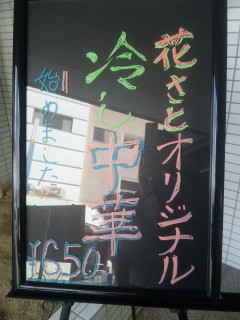 花さとオリジナル
冷し中華
始めました
¥650-